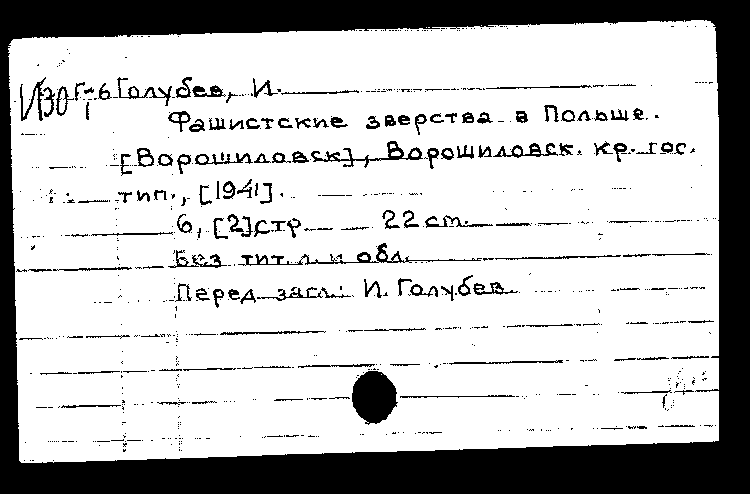 Г-6 Голубев, И.
Фашистские зверства в Польше.
[Ворошиловск], Ворошиловск. кр. гос.
тип., [1941].
6, [2] стр. 22 cm.
Без тит. л. и обл.
Перед загл.: И. Голубев.